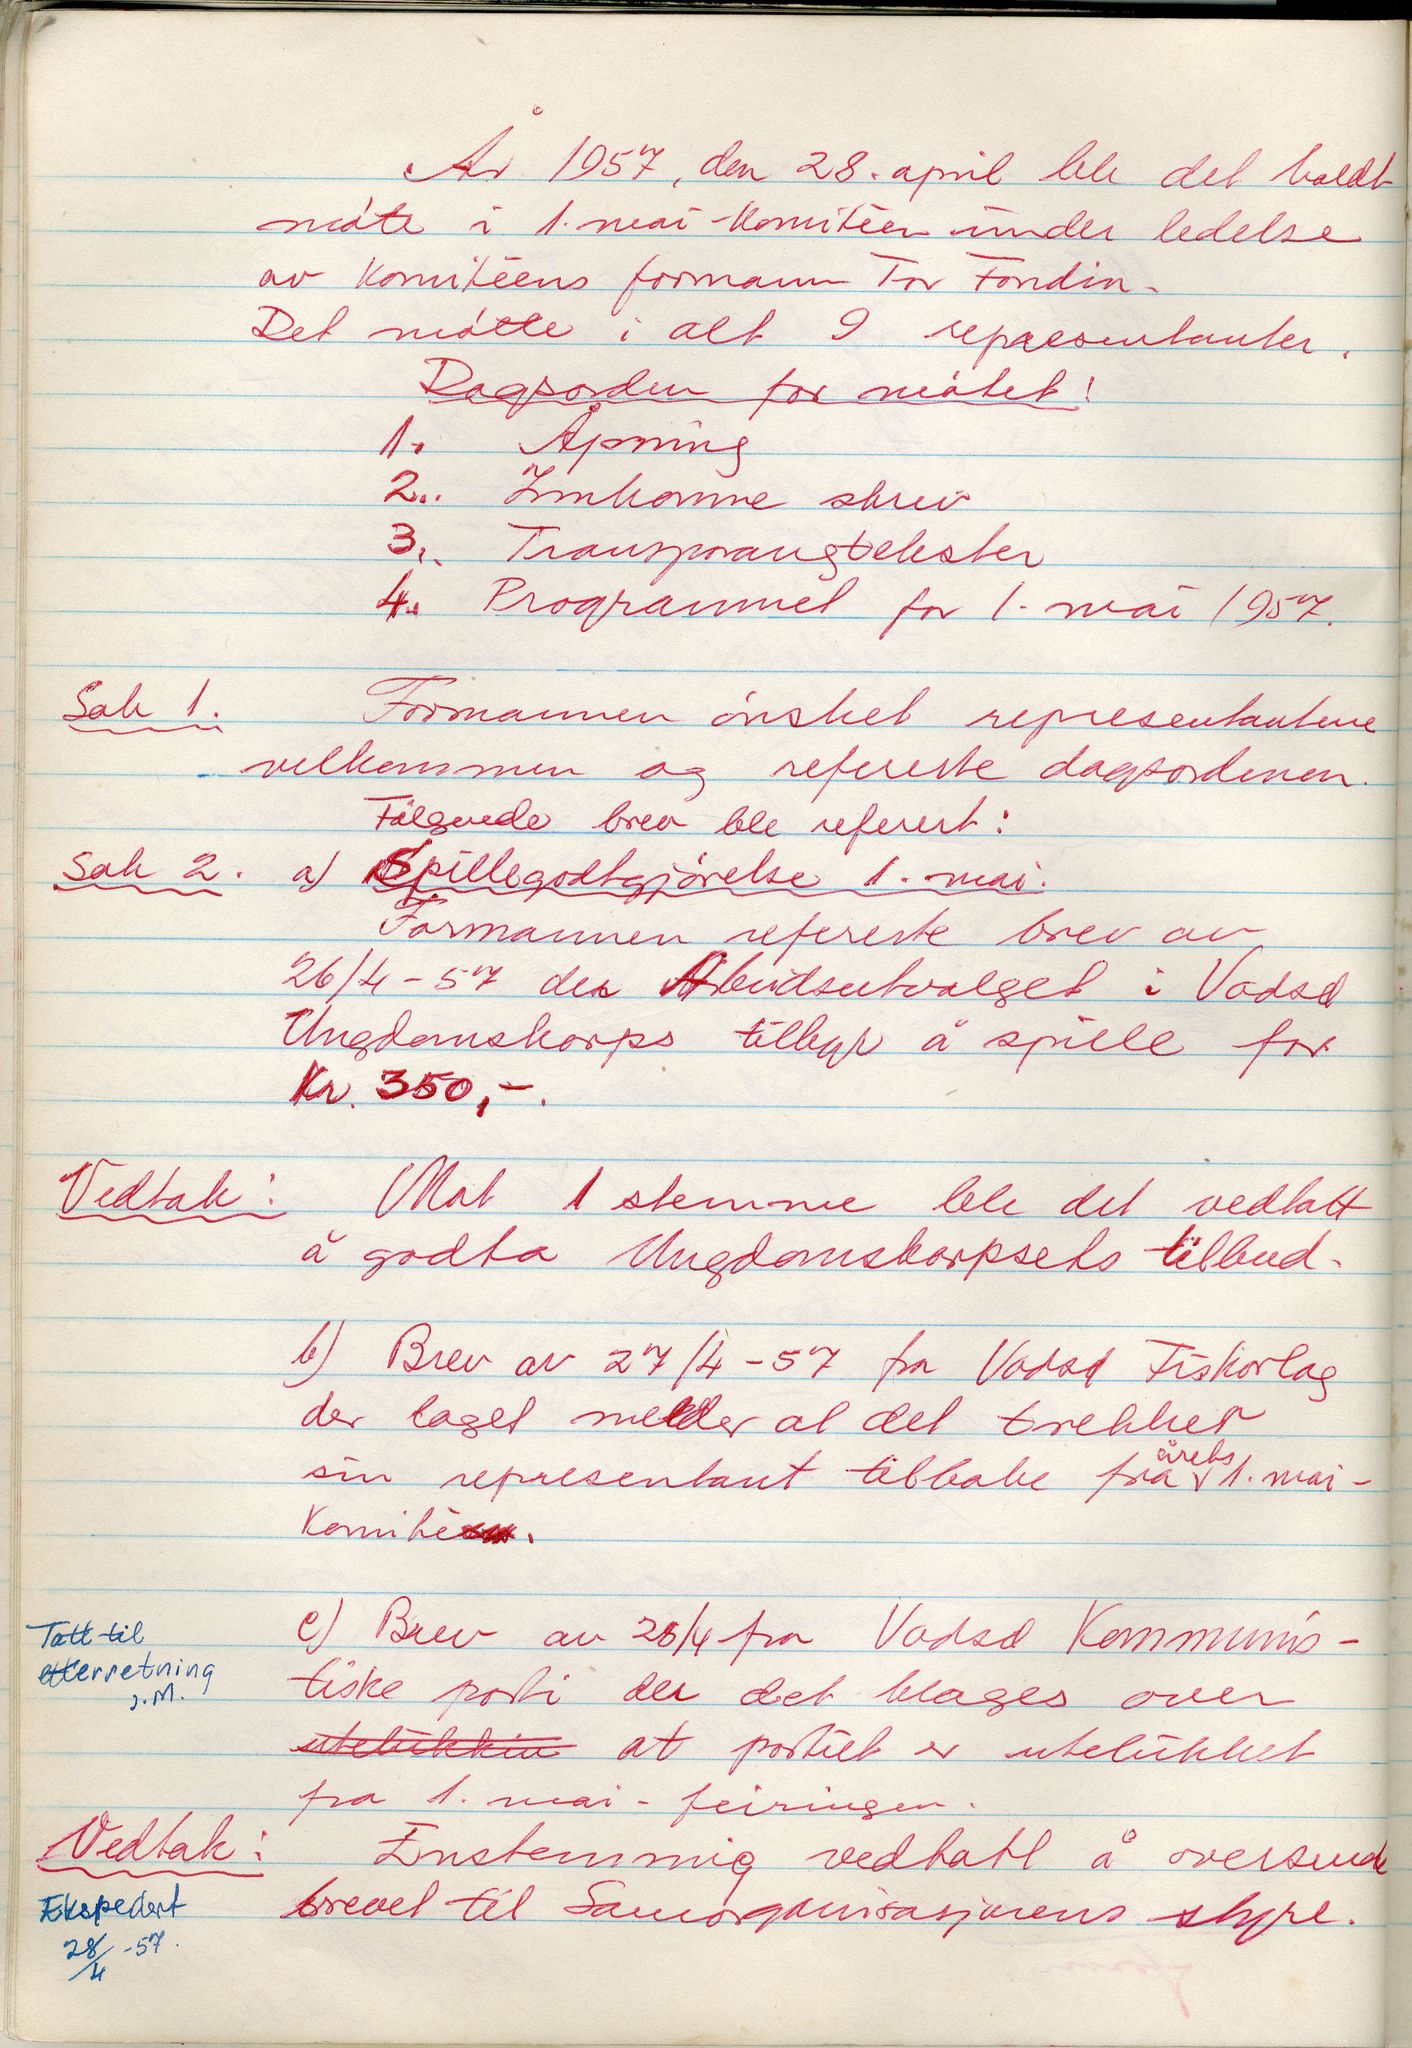 År 1957, den 28. april ble det holdt
møte i 1. mai-Komitéen under ledelse
av Komitéens formann Tor Fondin.
Det møtte i alt 9 repæsentanter.
Dagsorden for møtet:
1. Åpning
2. Innkomne skriv
3. Transparangtekster
4. Programmet for 1. mai 1957.
Sak 1. Formannen ønsket representantene
velkommen og refererte dagsordenen.
Følgende brev ble referert:
Sak 2. a) Spillegodtgjørelse 1. mai.
Formannen refererte brev av
26/4-57 der Arbeidsutvalget i Vadsø
Ungdomskorps tilbyr å spille for
Kr. 350,-.
Vedtak: Mot 1 stemme ble det vedtatt
å godta Ungdomskorpsets tilbud.
b) Brev av 27/4-57 fra Vadsø Fiskarlag
der laget melder at det trekker
sin representant tilbake fra årets 1. mai-
Komité.
c) Brev av 28/4 fra Vadsø Kommunis-
Tatt til
etterretning
J.M.
tiske parti der det klages over
utelukkin at partiet er utelukket
fra 1. mai-feiringen.
Vedtak: Enstemmig vedtatt å oversende
brevet til Samorganisasjonens styre.
Ekspedert
28/4-57.